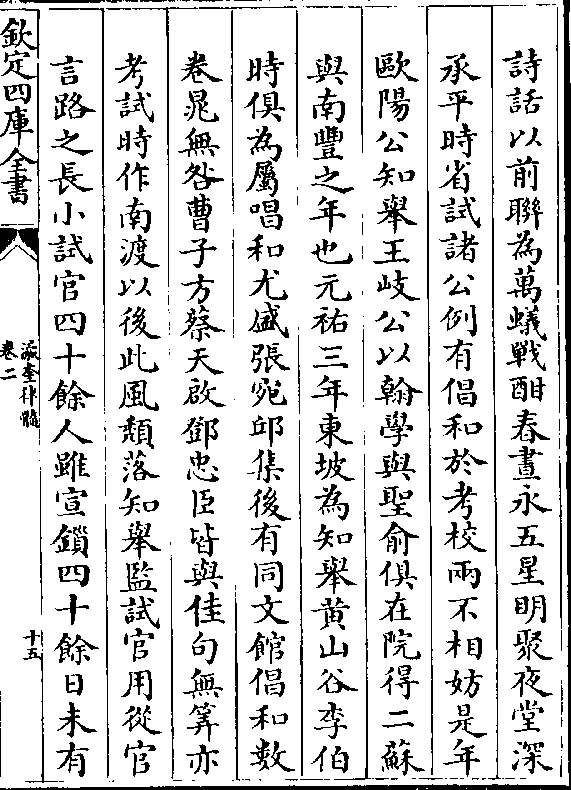 詩話以前聯為萬蟻戰酣春晝永五星明聚夜堂深
承平時省試諸公例有倡和於考校兩不相妨是年
歐陽公知舉王岐公以翰學與聖俞俱在院得二蘇
與南豐之年也元祐三年東坡為知舉黃山谷李伯
時俱為屬唱和尤盛張宛邱集後有同文館倡和數
卷晁無咎曹子方蔡天啟鄧忠臣皆與佳句無筭亦
考試時作南渡以後此風頽落知舉監試官用從官
言路之長小試官四十餘人雖宣鎖四十餘日未有
欽定四庫全書
瀛奎律髓
卷二
十五